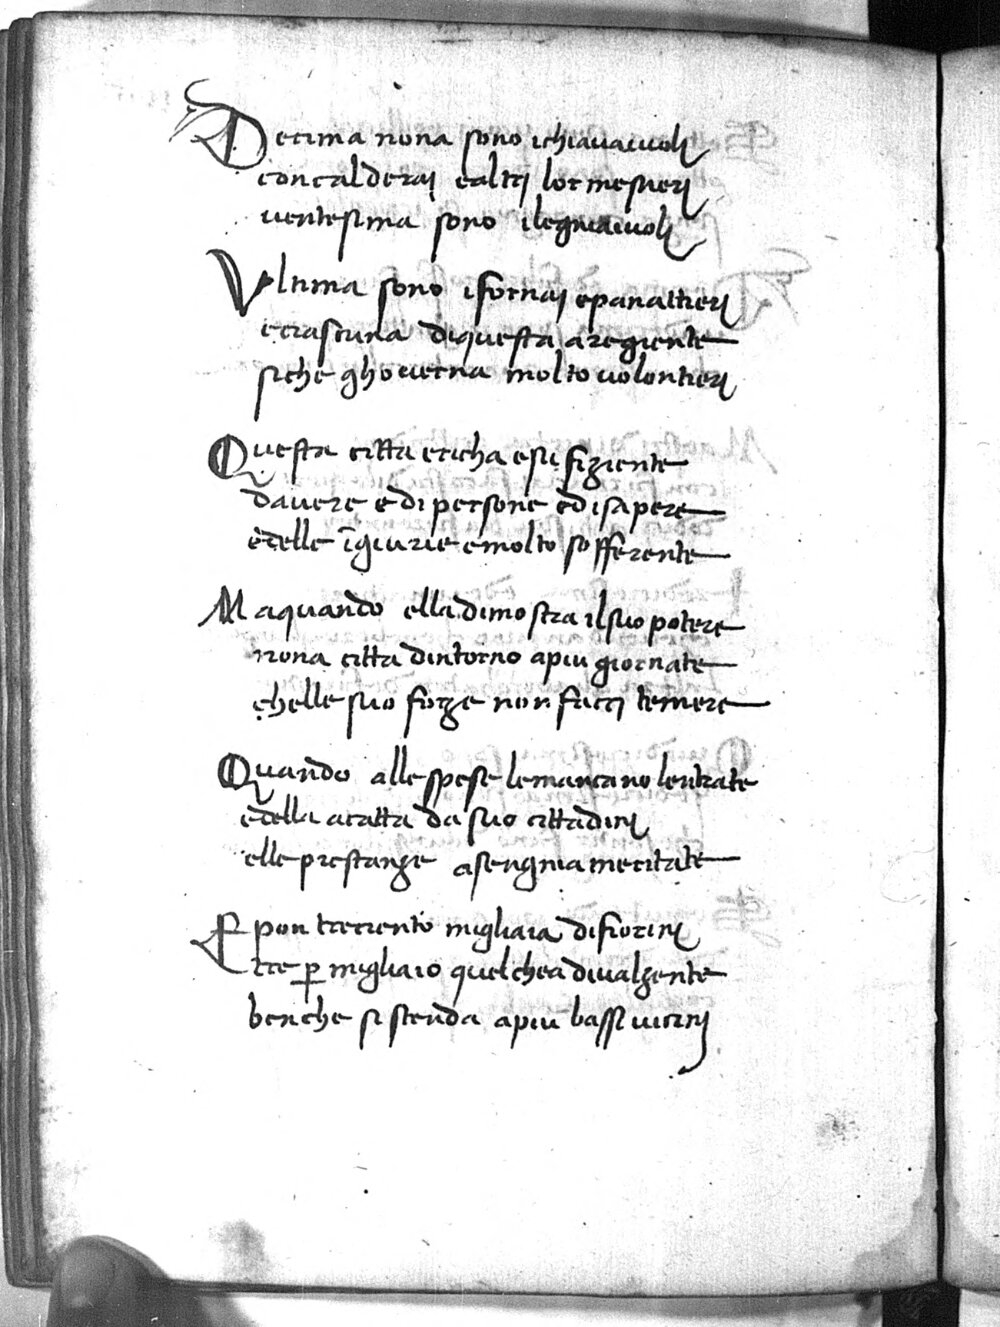 Decima nona sono ichiavaiuolj
concalderaj ealtrj lor mestierj
ventesima sono ilegniaiuolj
Vltima sono ifornaj epanattierj
eciascuna diquesta aregiente
siche ghoverna molto volontierj
Questa citta ericha esufiziente
davere edipersone edisapere
edelle īgiurie emolto sofferente
Maquando elladimostra ilsuo potere
nona citta dintorno apiu giornate
chelle suo forze non faccj temere
Quando allespese lemancano lentrate
edella acatta da suo cittadinj
elle prestanze asengnia meritate
Epon trecento migliaia difiorinj
tre p migliaio quelchea divalsente
benche sistenda apiu bassi vicinj